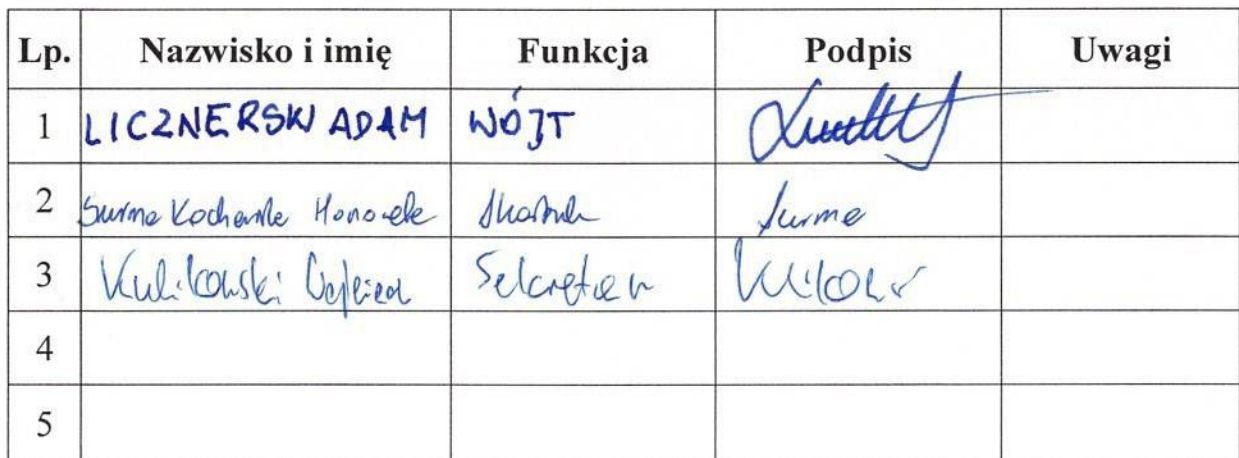 Lp. Nazwisko i imię Funkcja Podpis Uwagi
1 LICZNERSKI ADAM WÓJT
2 Surma Kochanek Skarbnik Surma
3 Kulikowski Wojciech Sekretarz
4
5